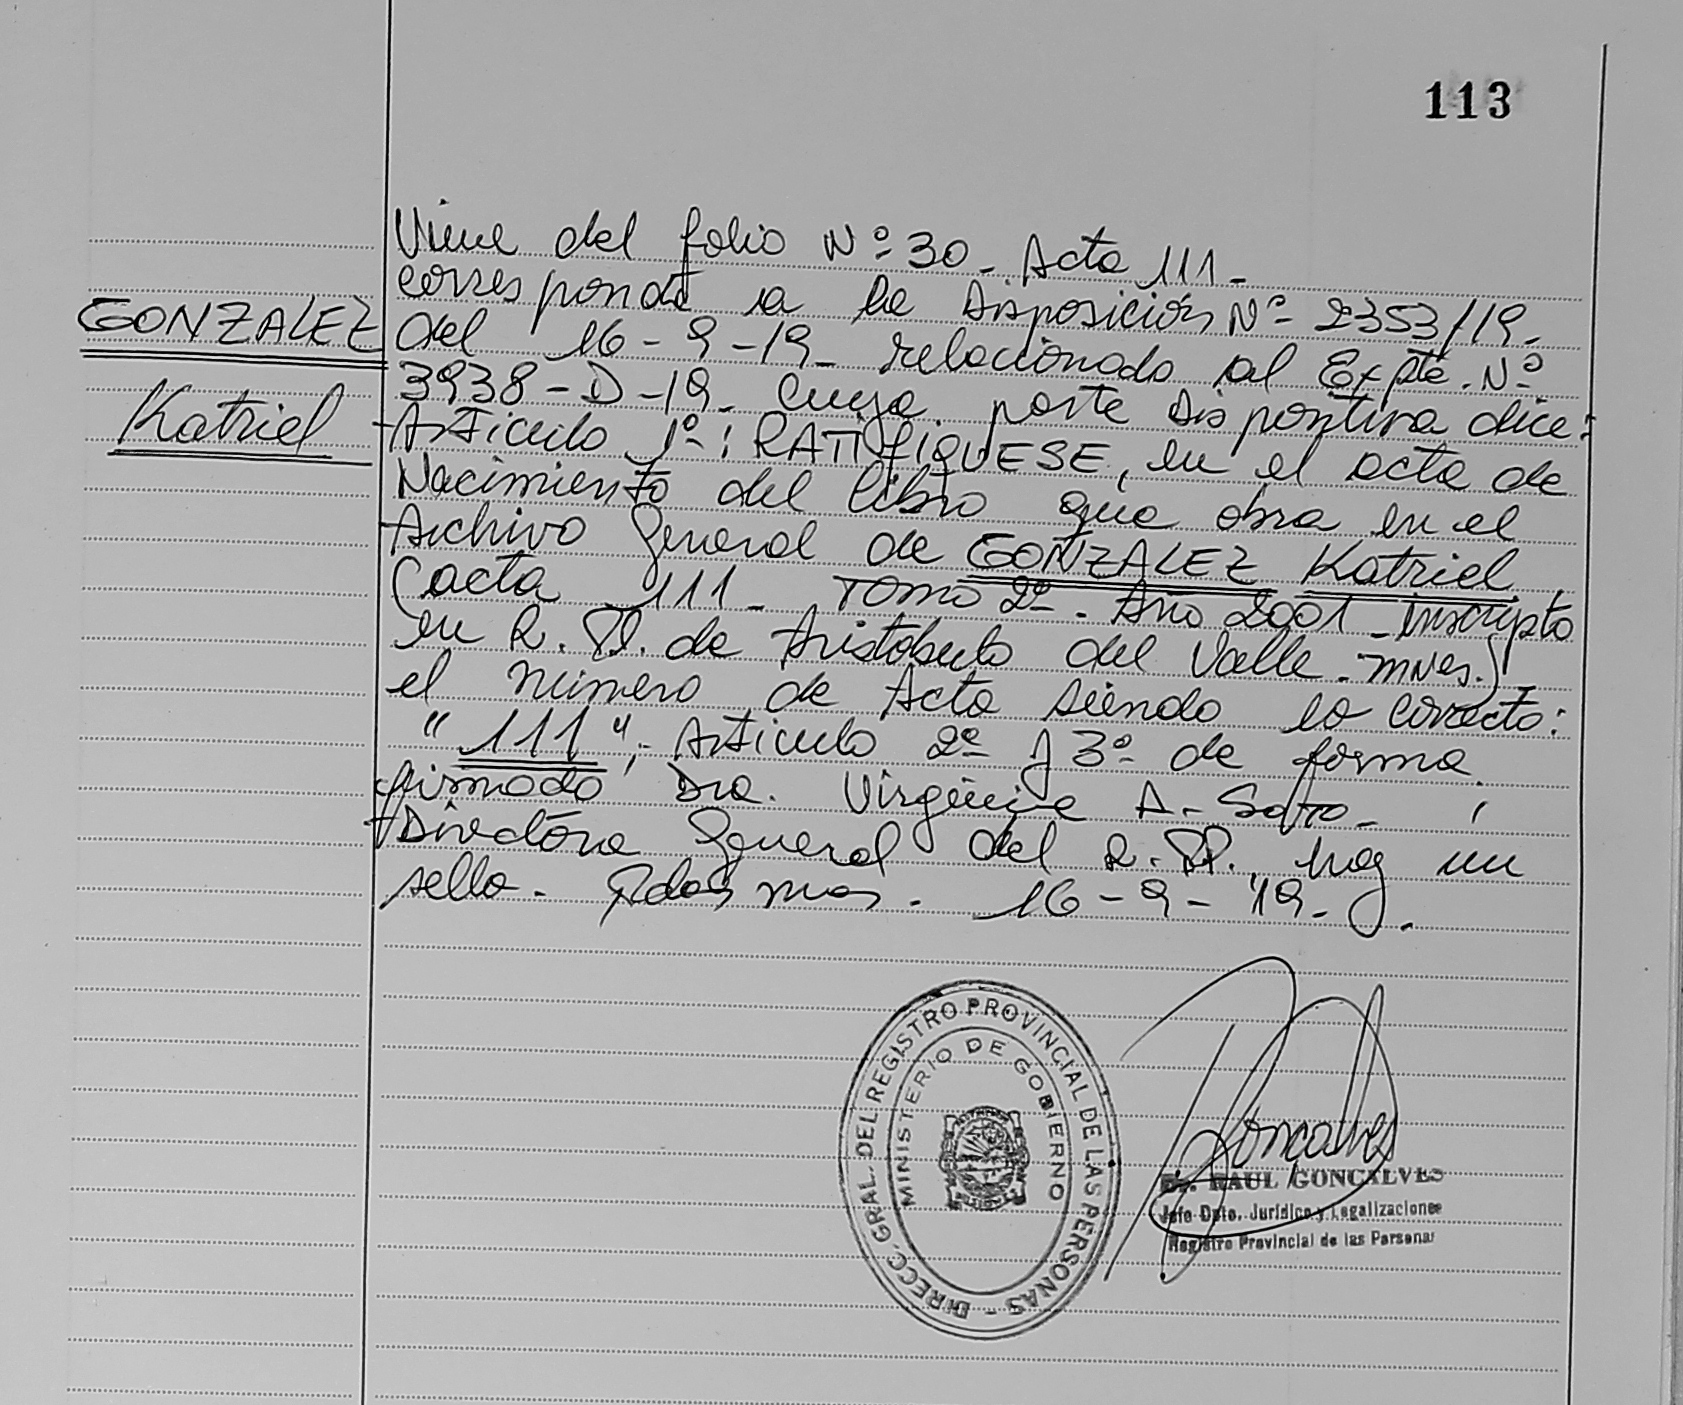 113
GONZALEZ
Katriel
Viene del folio Nº 30 - Acta 111 -
corresponde a la Disposición Nº 2353/19 -
del 16-9-19 - relacionado al Expte. Nº
3938-D-19 - Cuya parte Dispositiva dice:
Articulo 1º: RATIFIQUESE, en el acta de
Nacimiento del libro que obra en el
Archivo General de GONZALEZ Katriel
(acta 111 - Tomo 2º - Año 2001 - inscripto
en R.PP. de Aristobulo del Valle - Mnes.)
el número de Acta siendo lo correcto:
"111"; - Articulo 2º y 3º de forma.
firmado Dra. Virginia A. Soto -
Directora General del R.PP., hay un
sello. Pdas mnes. 16-9-19 -
DIRECC. GRAL. DEL REGISTRO PROVINCIAL DE LAS PERSONAS -
MINISTERIO DE GOBIERNO
Goncalves
Dr. RAUL GONCALVES
Jefe Dpto. Jurídico y Legalizaciones
Registro Provincial de las Personas